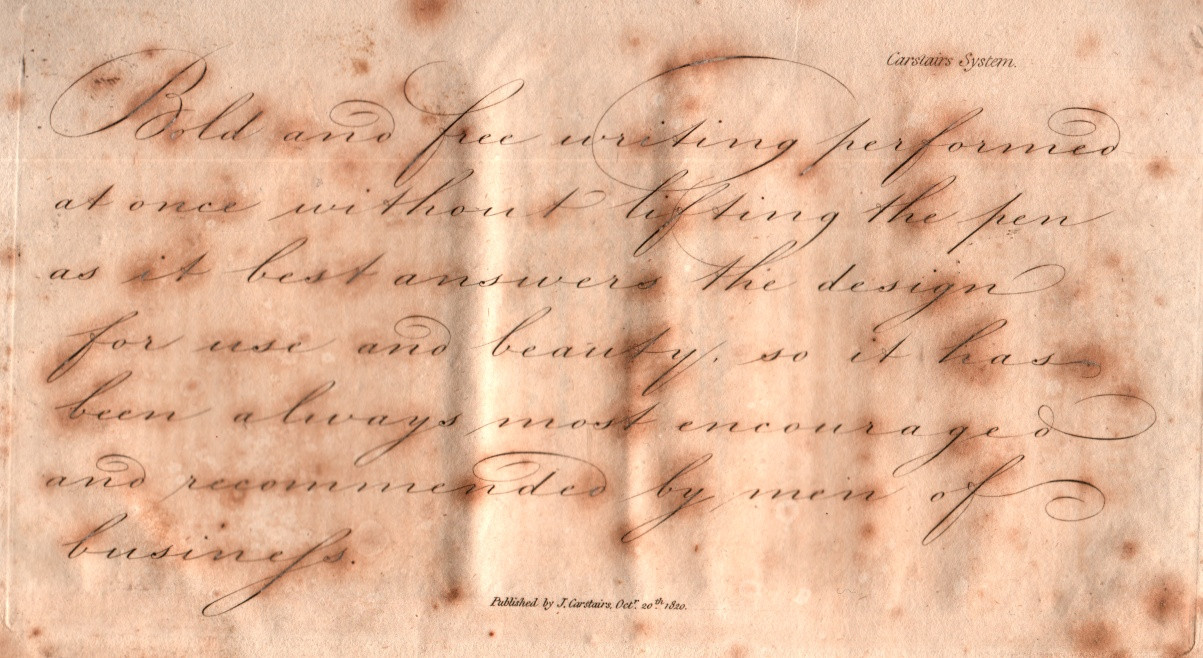 Carstairs System.
Bold and free writing performed
at once without lifting the pen
as it best answers the design
for use and beauty, so it has
been always most encouraged
and recommended by men of
busineſs.
Published by J. Carstairs, Octr. 20th 1820.